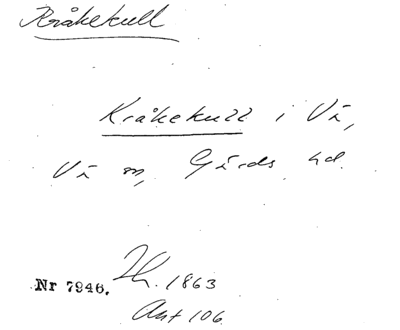 Kråkekull
Kråkekull i Vä,
Vä sn, Gärds hd.
Nr 7946. Th. 1863
Ant 106